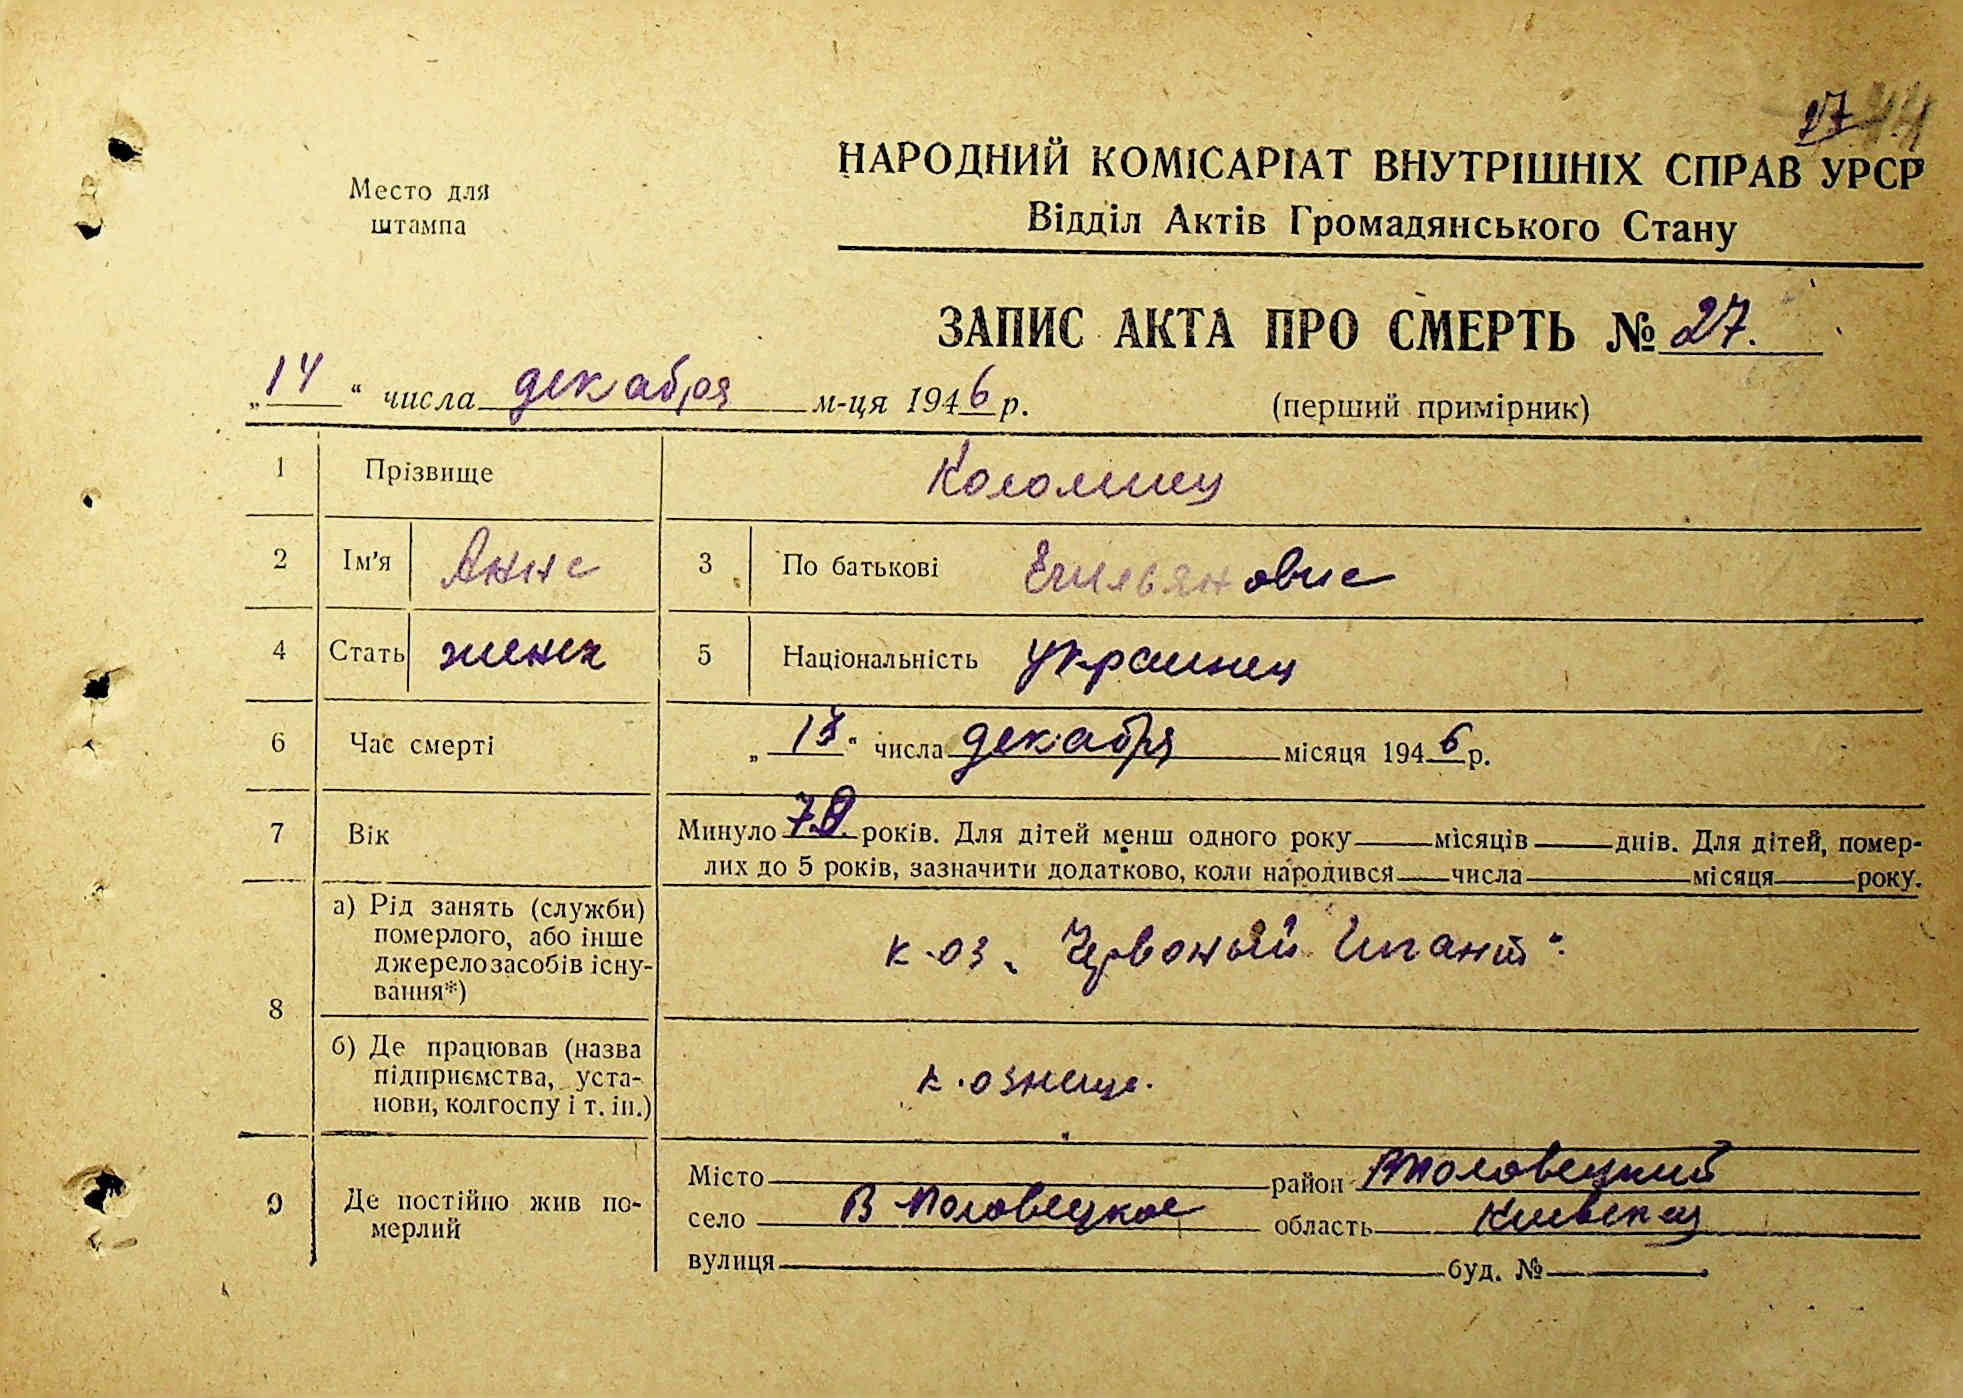 27
44
НАРОДНИЙ КОМІСАРІАТ ВНУТРІШНІХ СПРАВ УРСР
Место для
штампа
Відділ Актів Громадянського Стану
ЗАПИС АКТА ПРО СМЕРТЬ № 27.
„14“ числа декабря м-ця 1946 р.
(перший примірник)
1 Прізвище Коломиец
2 Ім'я Анна 3 По батькові Емильяновна
4 Стать женск 5 Національність украинец
6 Час смерті „13“ числа декабря місяця 1946 р.
7 Вік Минуло 78 років. Для дітей менш одного року місяців днів. Для дітей, помер-
лих до 5 років, зазначити додатково, коли народився числа місяця року.
8 а) Рід занять (служби)
померлого, або інше
джерело засобів існу-
вання*)
к-оз „Червоный Гигант“
б) Де працював (назва
підприємства, уста-
нови, колгоспу і т. ін.)
9 Де постійно жив по-
мерлий
Місто район Вполовецкий
село В Половецкое область Киевская
вулиця буд. №